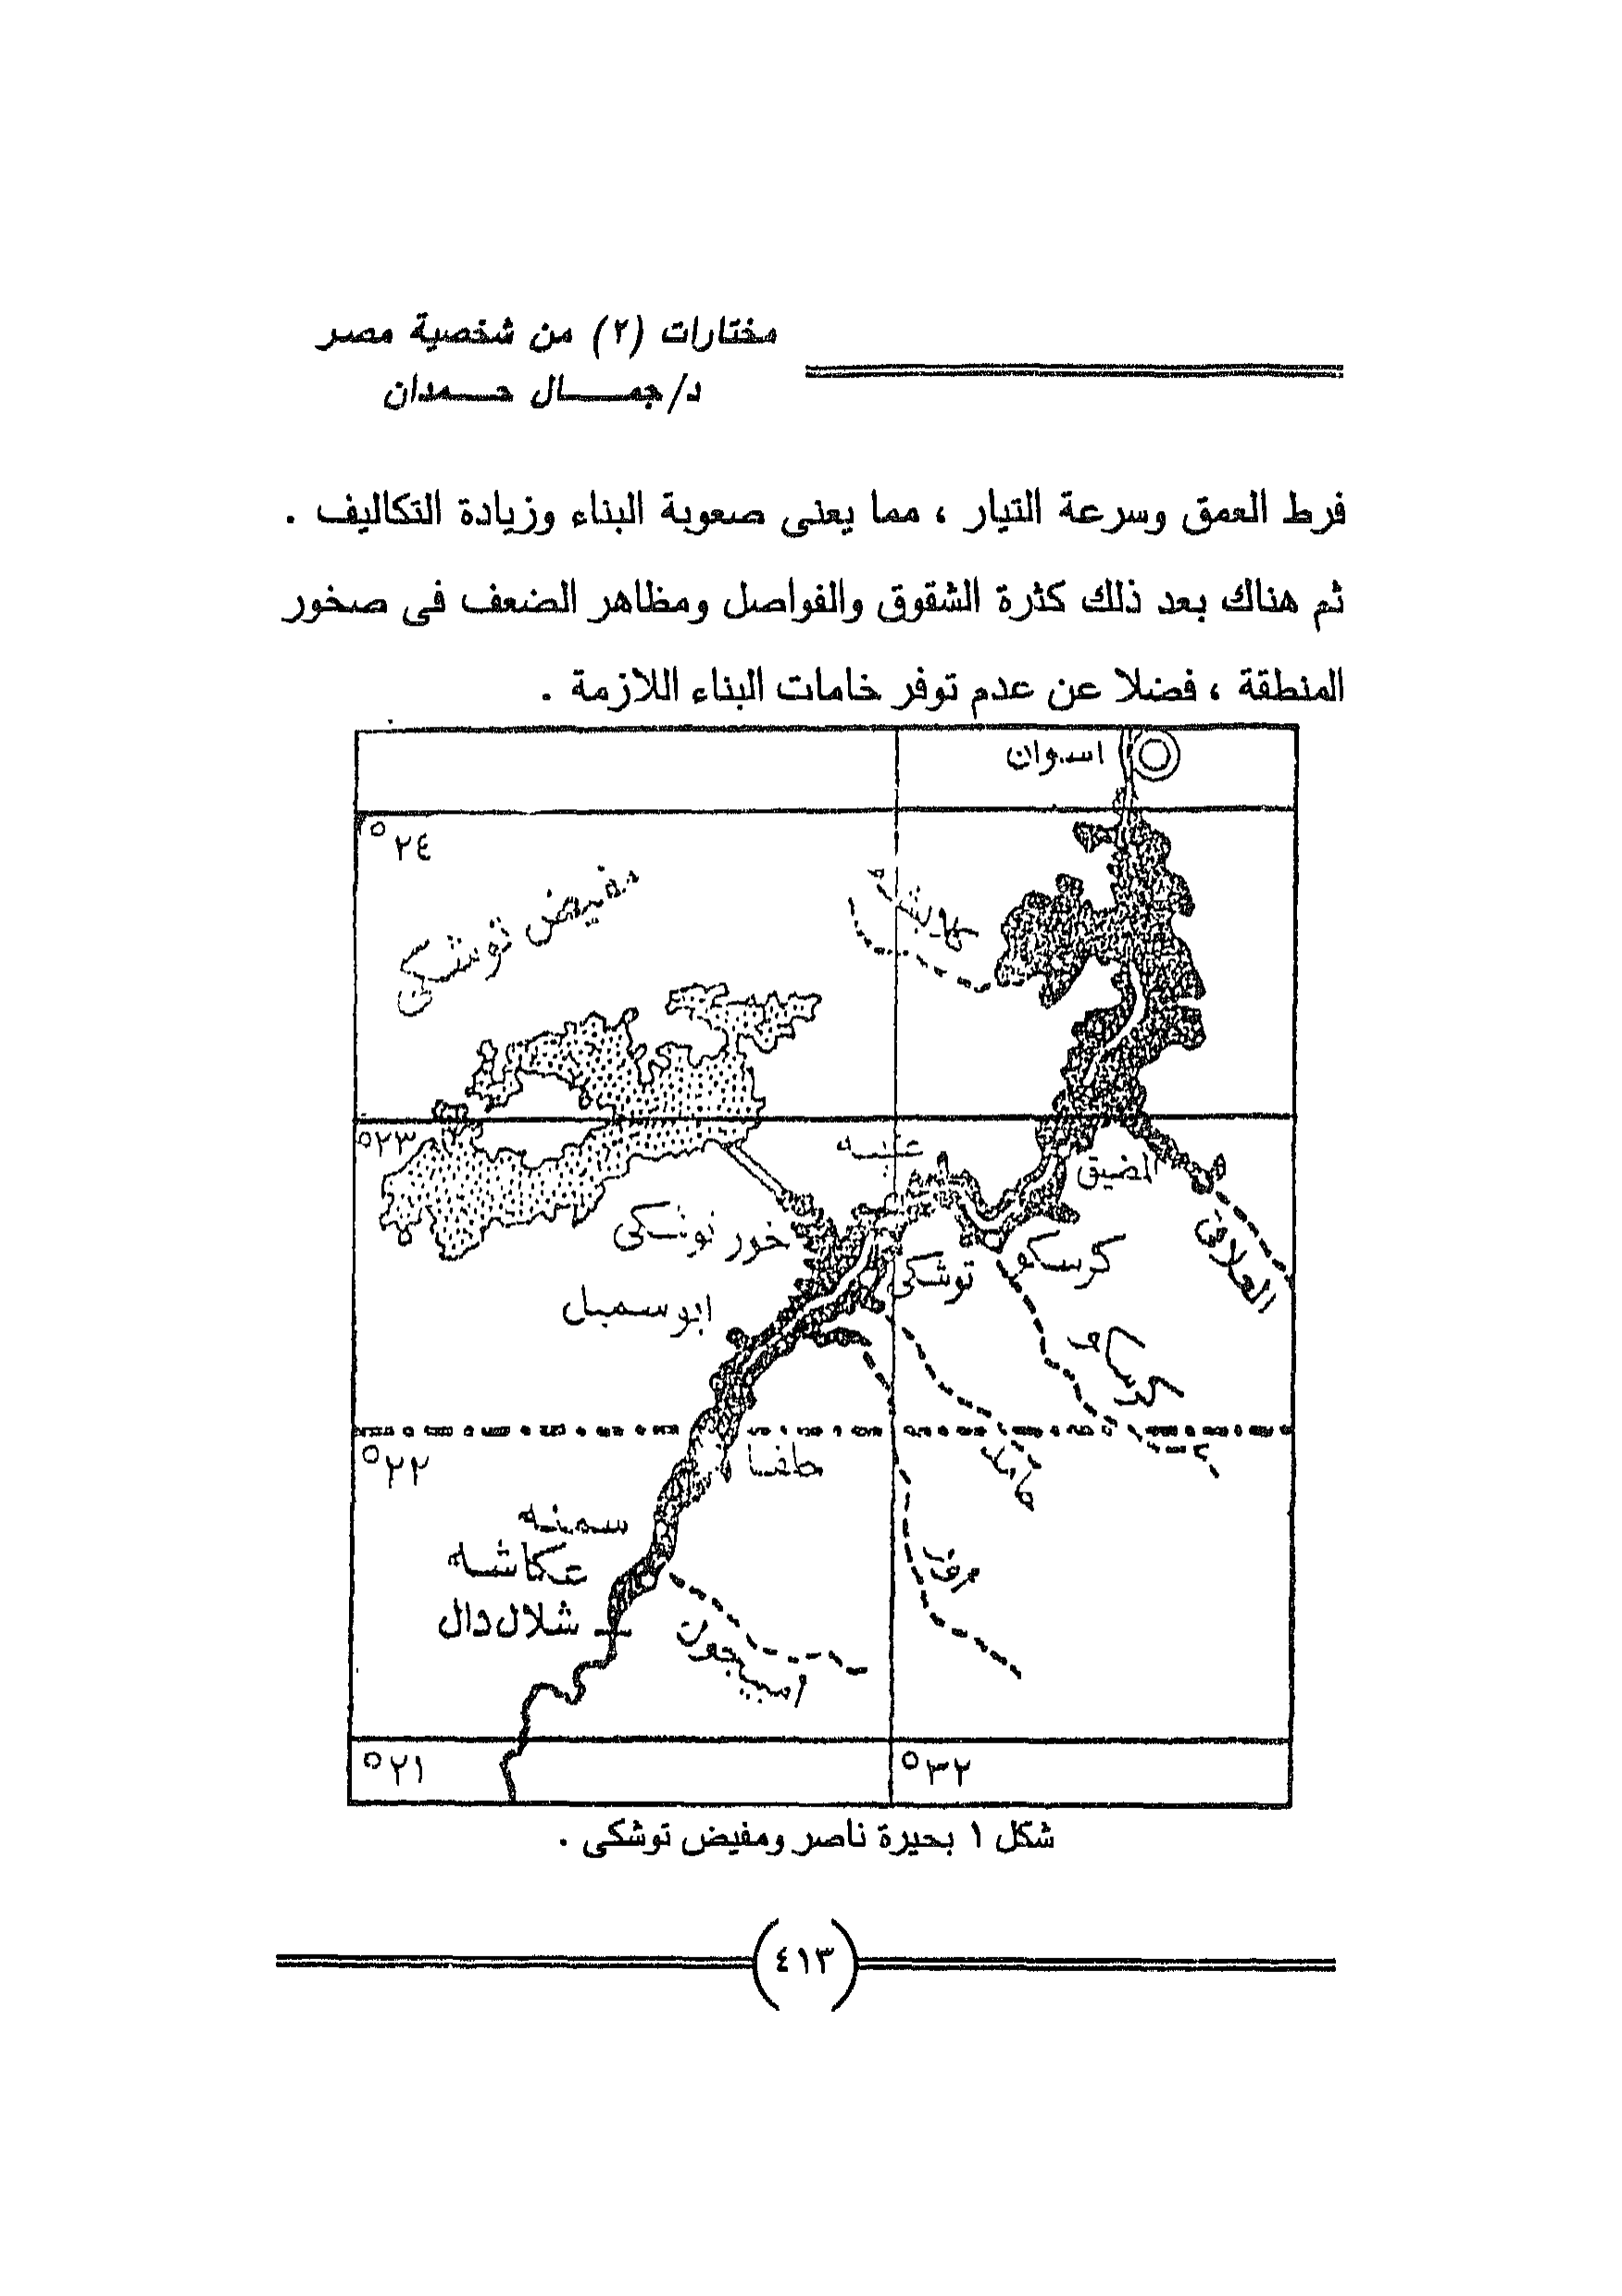 مختارات (٢) من شخصية مصر
د/جمـــال حــمدان
فرط العمق وسرعة التيار ، مما يعنى صعوبة البناء وزيادة التكاليف .
ثم هناك بعد ذلك كثرة الشقوق والفواصل ومظاهر الضعف فى صخور
المنطقة ، فضلا عن عدم توفر خامات البناء اللازمة .
اسوان
٢٤°
مفيض توشكى
٢٣°
عنيبه
المضيق
خور توشكى
توشكى
كرسكو
العلاقى
ابو سمبل
٢٢°
حلفا
سمنه
عكاشه
شلال دال
٢١°
٣٢°
شكل ١ بحيرة ناصر ومفيض توشكى .
(٤١٣)